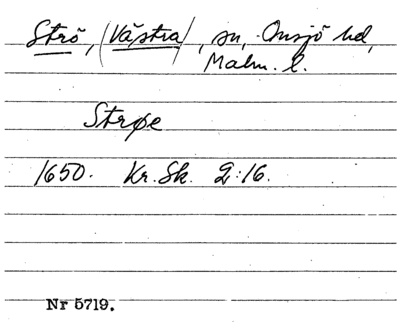 Strö, (Västra), sn, Onsjö hd,
Malm. l.
Strøe
1650. Kr. Sk. 2:16.
Nr 5719.